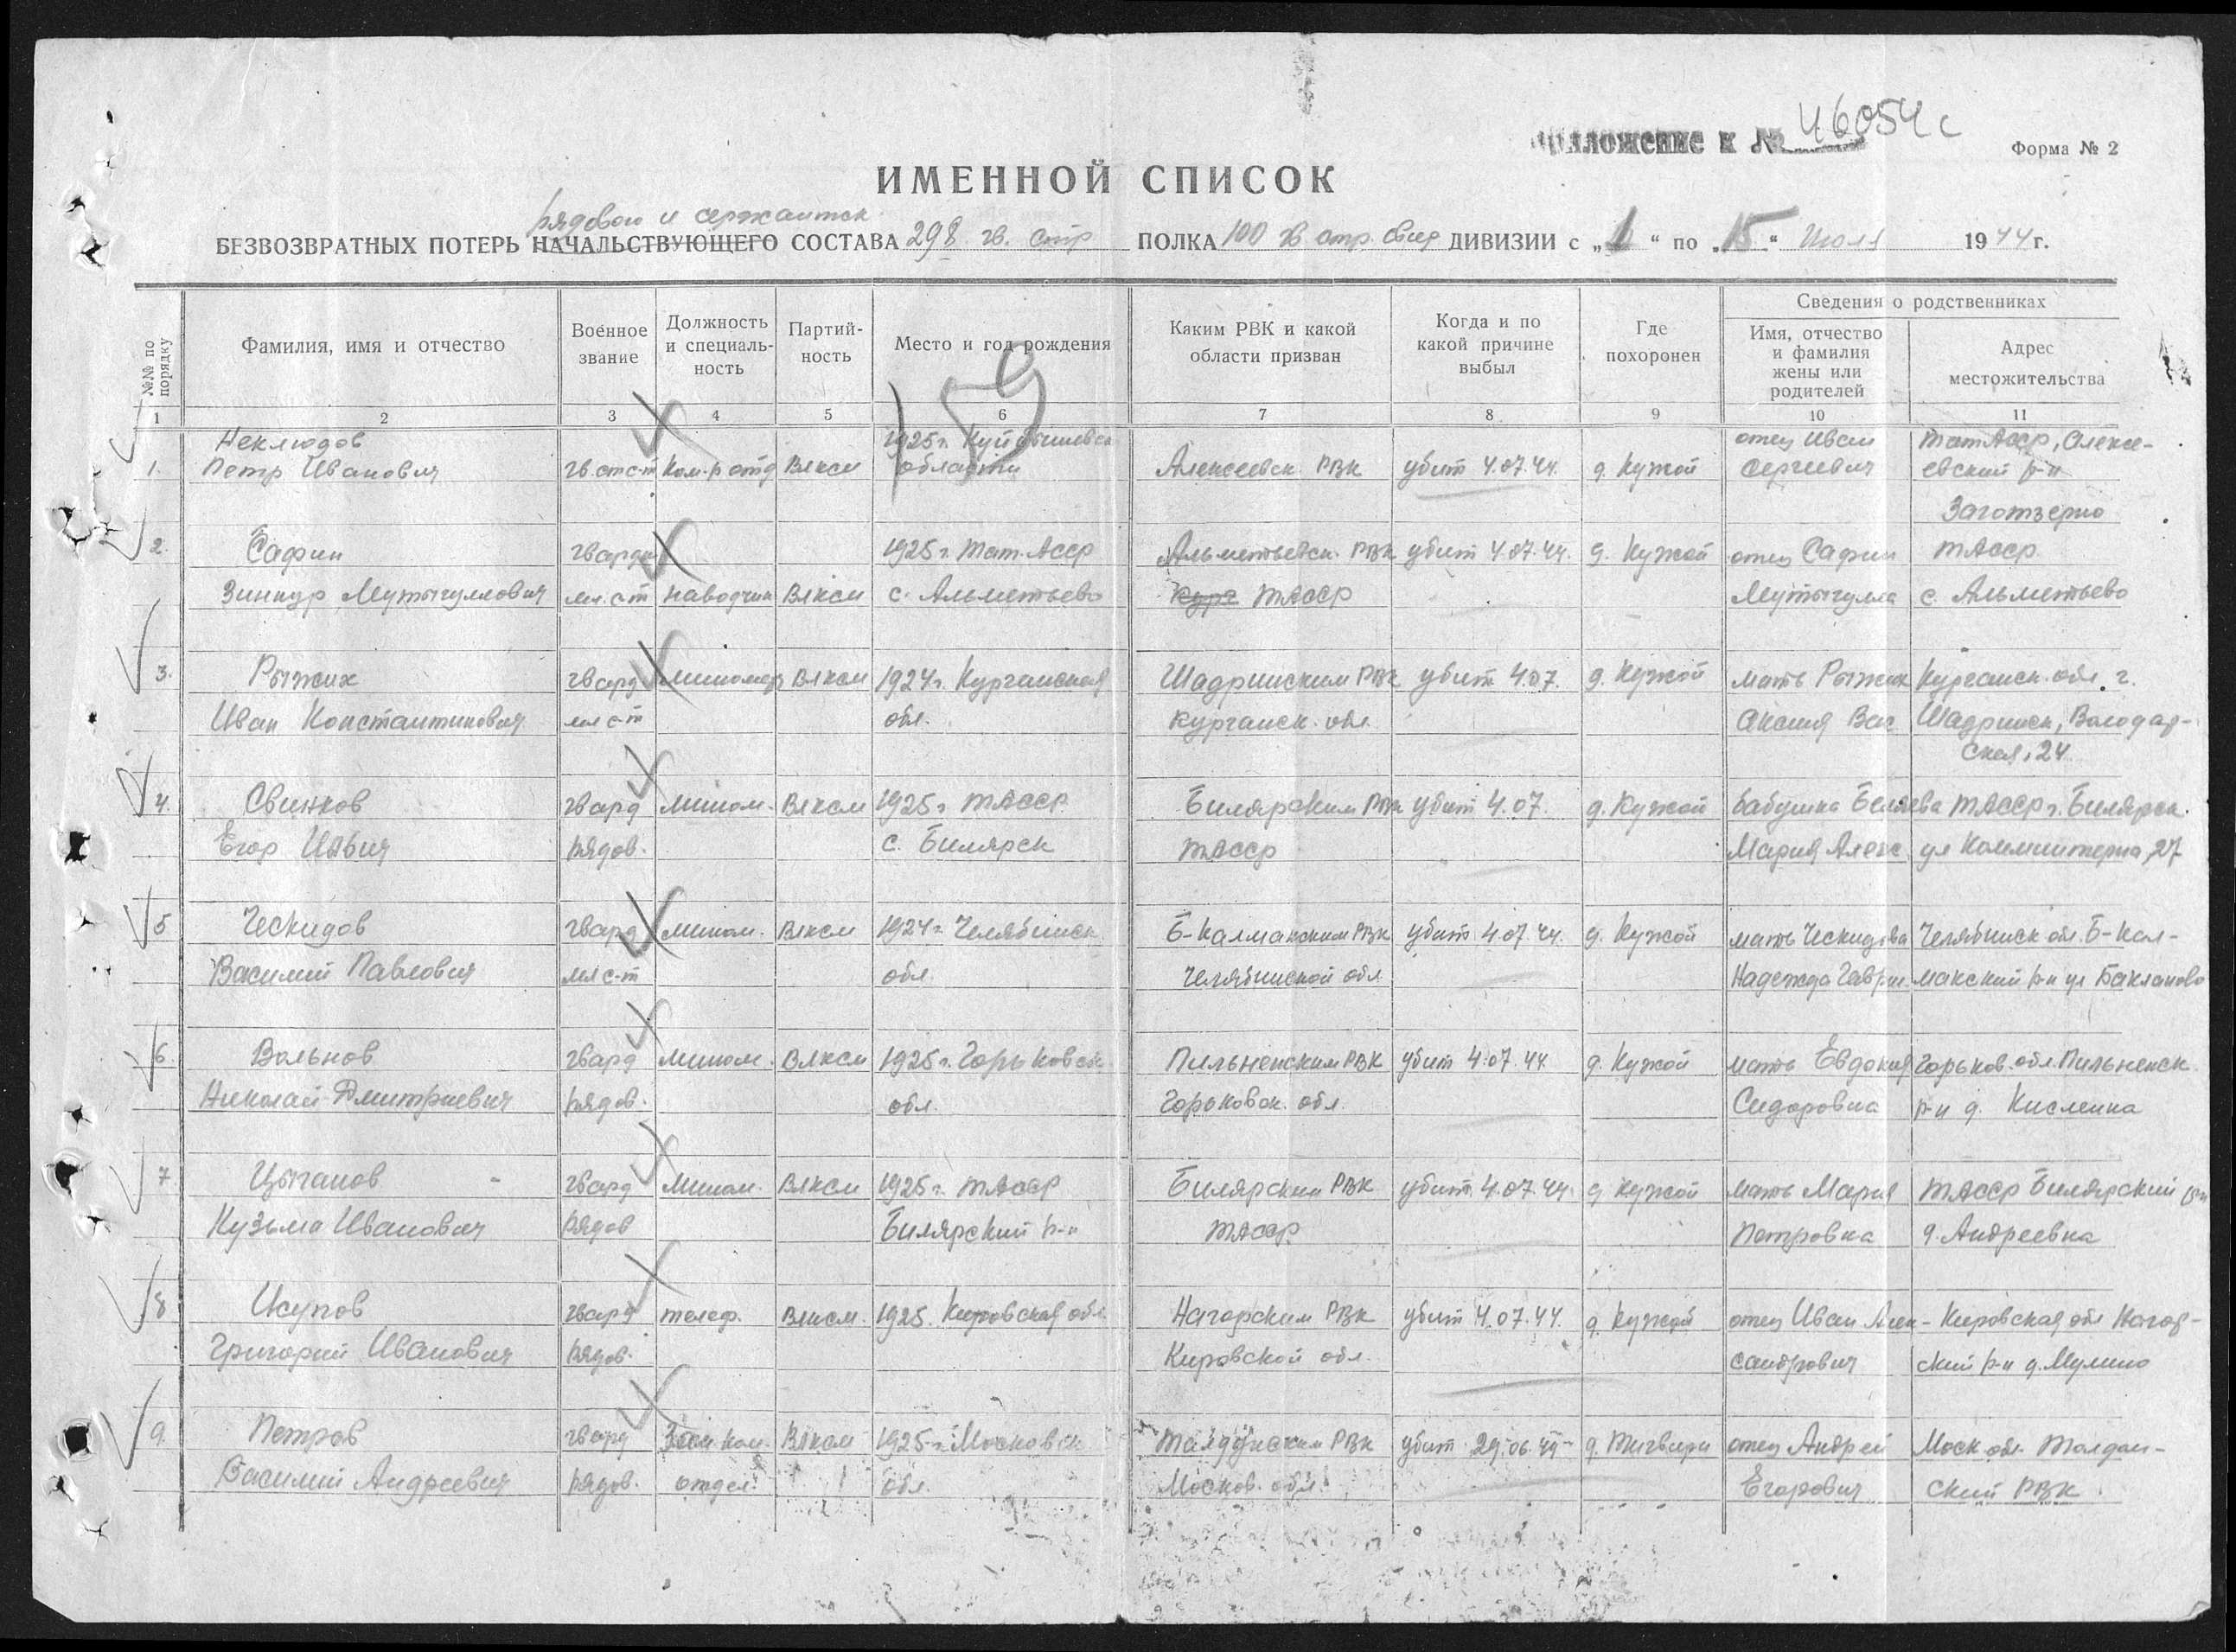 Приложение к № 46054с
Форма № 2
ИМЕННОЙ СПИСОК
рядового и сержантск.
БЕЗВОЗВРАТНЫХ ПОТЕРЬ НАЧАЛЬСТВУЮЩЕГО СОСТАВА 298 гв. стр ПОЛКА 100 гв стр. свир ДИВИЗИИ с „1“ по „15“ Июля 1944 г.
№№ по порядку
Фамилия, имя и отчество
Военное звание
Должность и специальность
Партийность
Место и год рождения
Каким РВК и какой области призван
Когда и по какой причине выбыл
Где похоронен
Сведения о родственниках
Имя, отчество и фамилия жены или родителей
Адрес местожительства
1 2 3 4 5 6 7 8 9 10 11
Неклюдов 1925 г. Куйбышевск отец Иван ТатАсср, Алексе-
1. Петр Иванович гв. ст с-т Ком-р отд Влксм области Алексеевск РВК убит 4.07.44. д. Кужой Сергеевич евский р-н
Заготзерно
2. Сафин гвард 1925 г. Тат. Асср Альметьевск. РВК убит 4.07.44. д. Кужой отец Сафин ТАсср
Зиннур Мутыгуллович мл. с-т наводчик Влксм с. Альметьево Кург ТАССР Мутыгулла с. Альметьево
3. Рыжих гвард миномер Влксм 1924 г. Курганская Шадринским РВК убит 4.07. д. Кужой мать Рыжих Курганск. обл. г.
Иван Константинович мл с-т обл. Курганск. обл. Аксиня Вас Шадринск, Володар-
ская, 24
4. Свинков гвард мином. Влксм 1925 г ТАССР Билярским РВК убит 4.07. д. Кужой бабушка Беляева ТАССР г. Билярск.
Егор Ильич рядов. с. Билярск ТАССР Мария Алекс ул Коминтерна, 27
5 Ческидов гвард мином. Влксм 1924 г Челябинск Б-Калмакским РВК убит 4.07.44. д. Кужой мать Ческидова Челябинск обл. Б-Кал-
Василий Павлович мл с-т обл. Челябинской обл Надежда Гаврил. макский р-н ул Бакланово
6. Вольнов гвард мином. Влксм 1925 г. Горьковск. Пильненским РВК убит 4.07.44. д. Кужой мать Евдокия Горьков. обл. Пильненск.
Николай Дмитриевич рядов. обл. Горьковск. обл. Сидоровна р-н д. Кисленка
7 Цыганов гвард Мином. Влксм 1925 г. ТАССР Билярским РВК убит 4.07.44. д Кужой мать Мария ТАССР Билярский р-н
Кузьма Иванович рядов Билярский р-н ТАССР Петровна д. Андреевка
8 Исупов гвард телеф. Влксм 1925. Кировская обл. Нагорским РВК убит 4.07.44. д. Кужой отец Иван Алек- Кировская обл Нагор-
Григорий Иванович рядов. Кировской обл. сандрович ский р-н д. Мулино
9. Петров гвард Зам ком. Влксм 1925 г. Московск РВК убит 29.06.44 отец Андрей Моск обл. Талдом-
Василий Андреевич рядов. отдел. обл. Москов. обл. Егорович ский РВК